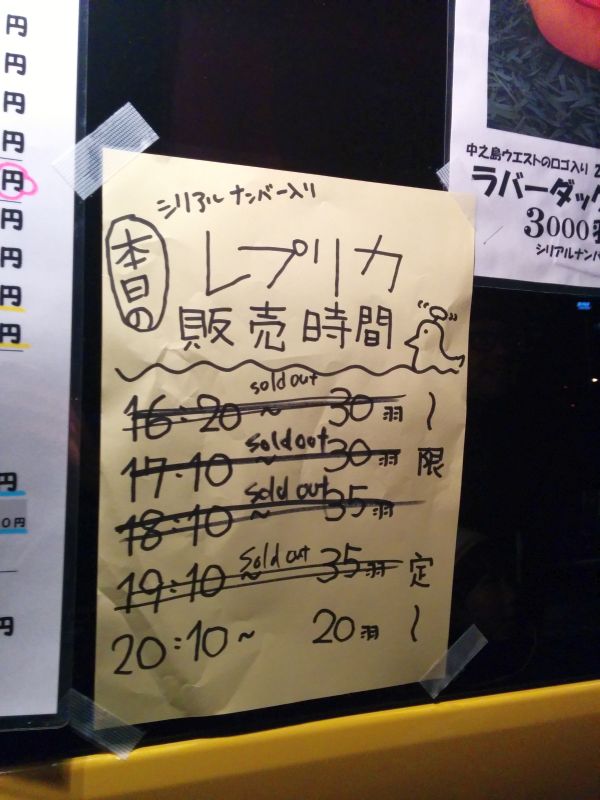 円
円
円
円
円
円
円
円
円
円
0円
円
シリアルナンバー入り
本日の
レプリカ
販売時間
sold out
16:20~ 30羽
sold out
17:10~ 30羽
sold out
18:10~ 35羽
sold out
19:10~ 35羽
20:10~ 20羽
〜限定〜
中之島ウエストのロゴ入り 2
ラバーダック
3000
シリアルナンバ